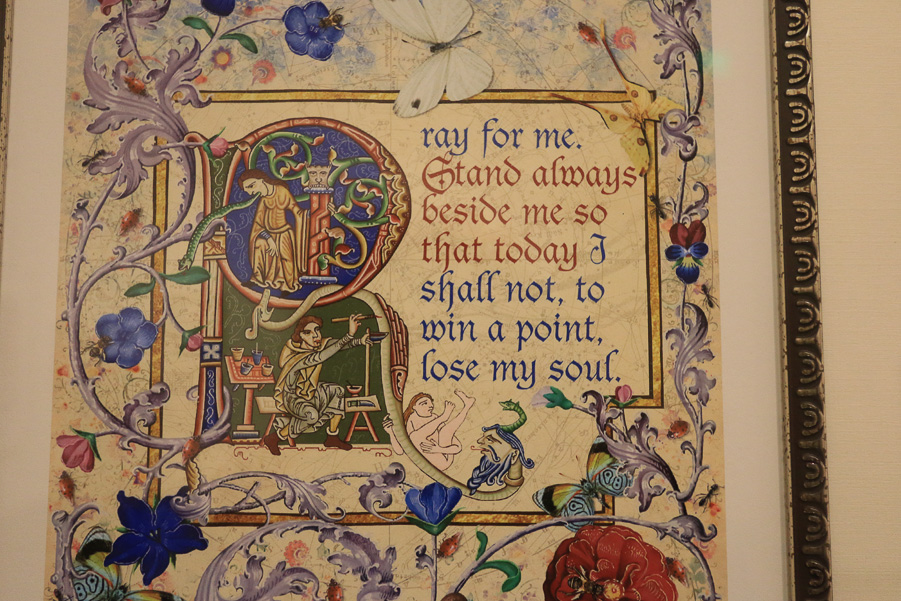 Pray for me.
Stand always
beside me so
that today I
shall not, to
win a point,
lose my soul.